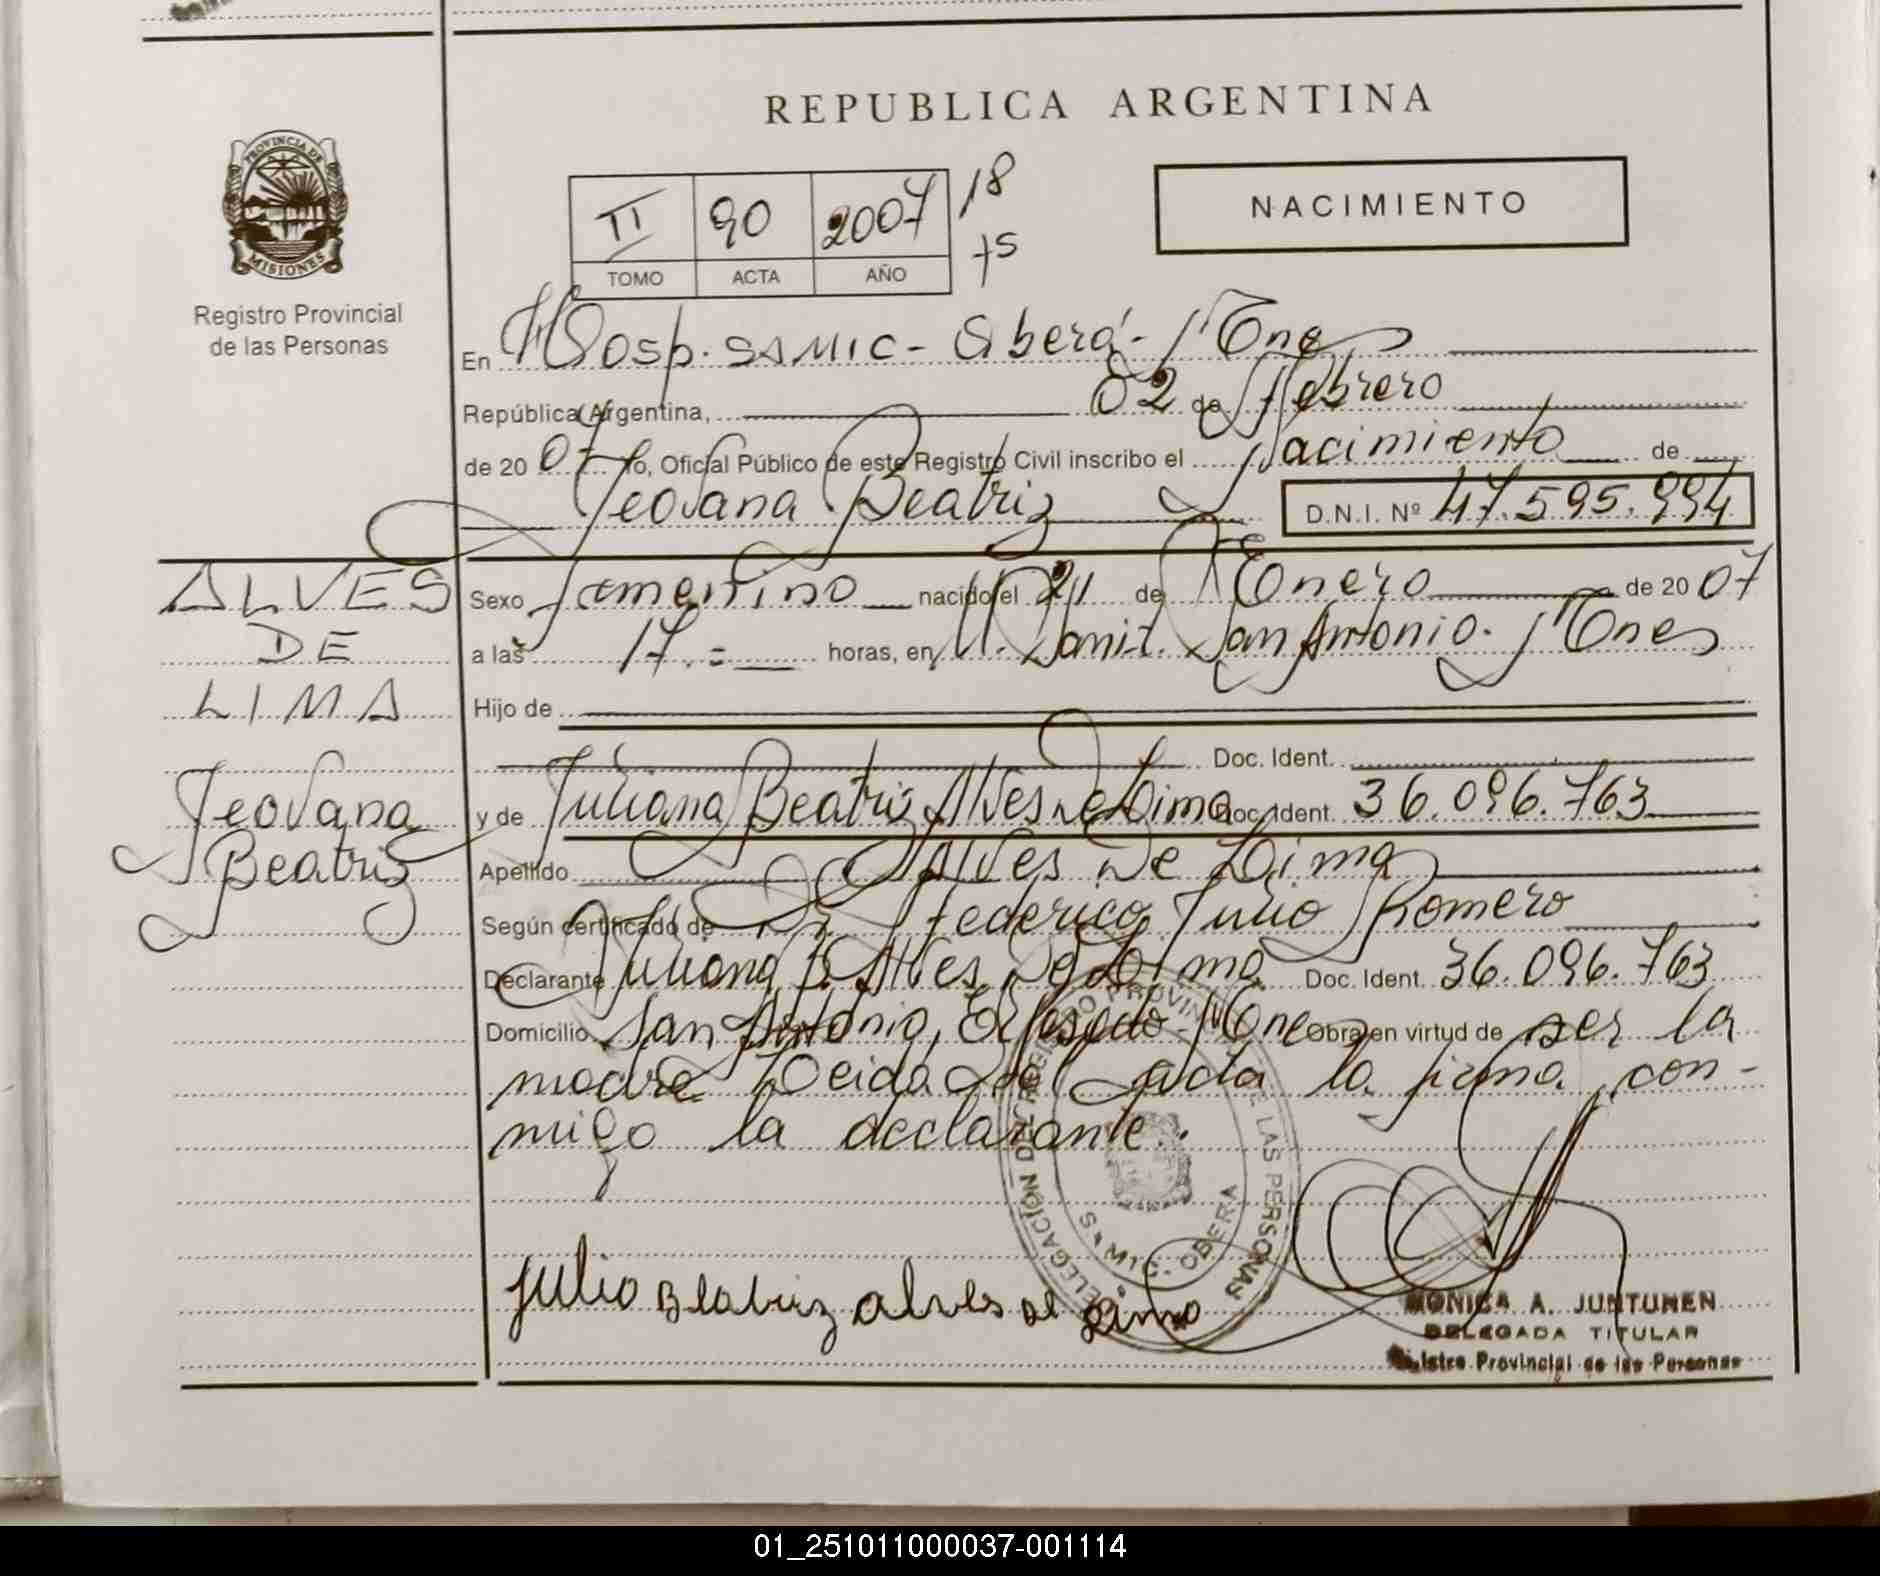 REPUBLICA ARGENTINA
PROVINCIA DE
MISIONES
Registro Provincial
de las Personas
II 90 2007 /18
75
TOMO ACTA AÑO
NACIMIENTO
En Hosp. SAMIC - Oberá - Mnes
República Argentina, 02 de Febrero
de 20 07 Yo, Oficial Público de este Registro Civil inscribo el Nacimiento de
Jeovana Beatriz D.N.I. Nº 47.595.994
ALVES
DE
LIMA
Jeovana
Beatriz
Sexo Femenino nacido el 21 de Enero de 20 07
a las 17.= horas, en U. Sanit. San Antonio. Mnes
Hijo de
Doc. Ident.
y de Juliana Beatriz Alves De Lima Doc. Ident. 36.096.763
Apellido Alves De Lima
Según certificado de Dr. Federico Julio Romero
Declarante Juliana B. Alves De Lima Doc. Ident. 36.096.763
Domicilio San Antonio, Mnes Obra en virtud de ser la
madre Leida del acta la firma con-
migo la declarante.
DELEGACIÓN DEL REGISTRO PROVINCIAL DE LAS PERSONAS
OBERA
Julia Beatriz alves de Lima
MONICA A. JUNTUNEN
DELEGADA TITULAR
Registro Provincial de las Personas
01_251011000037-001114